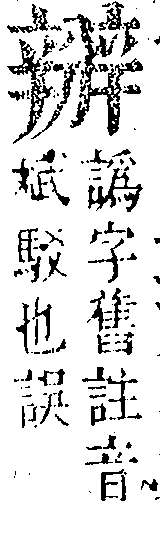 譌字舊註音
斌駁也誤